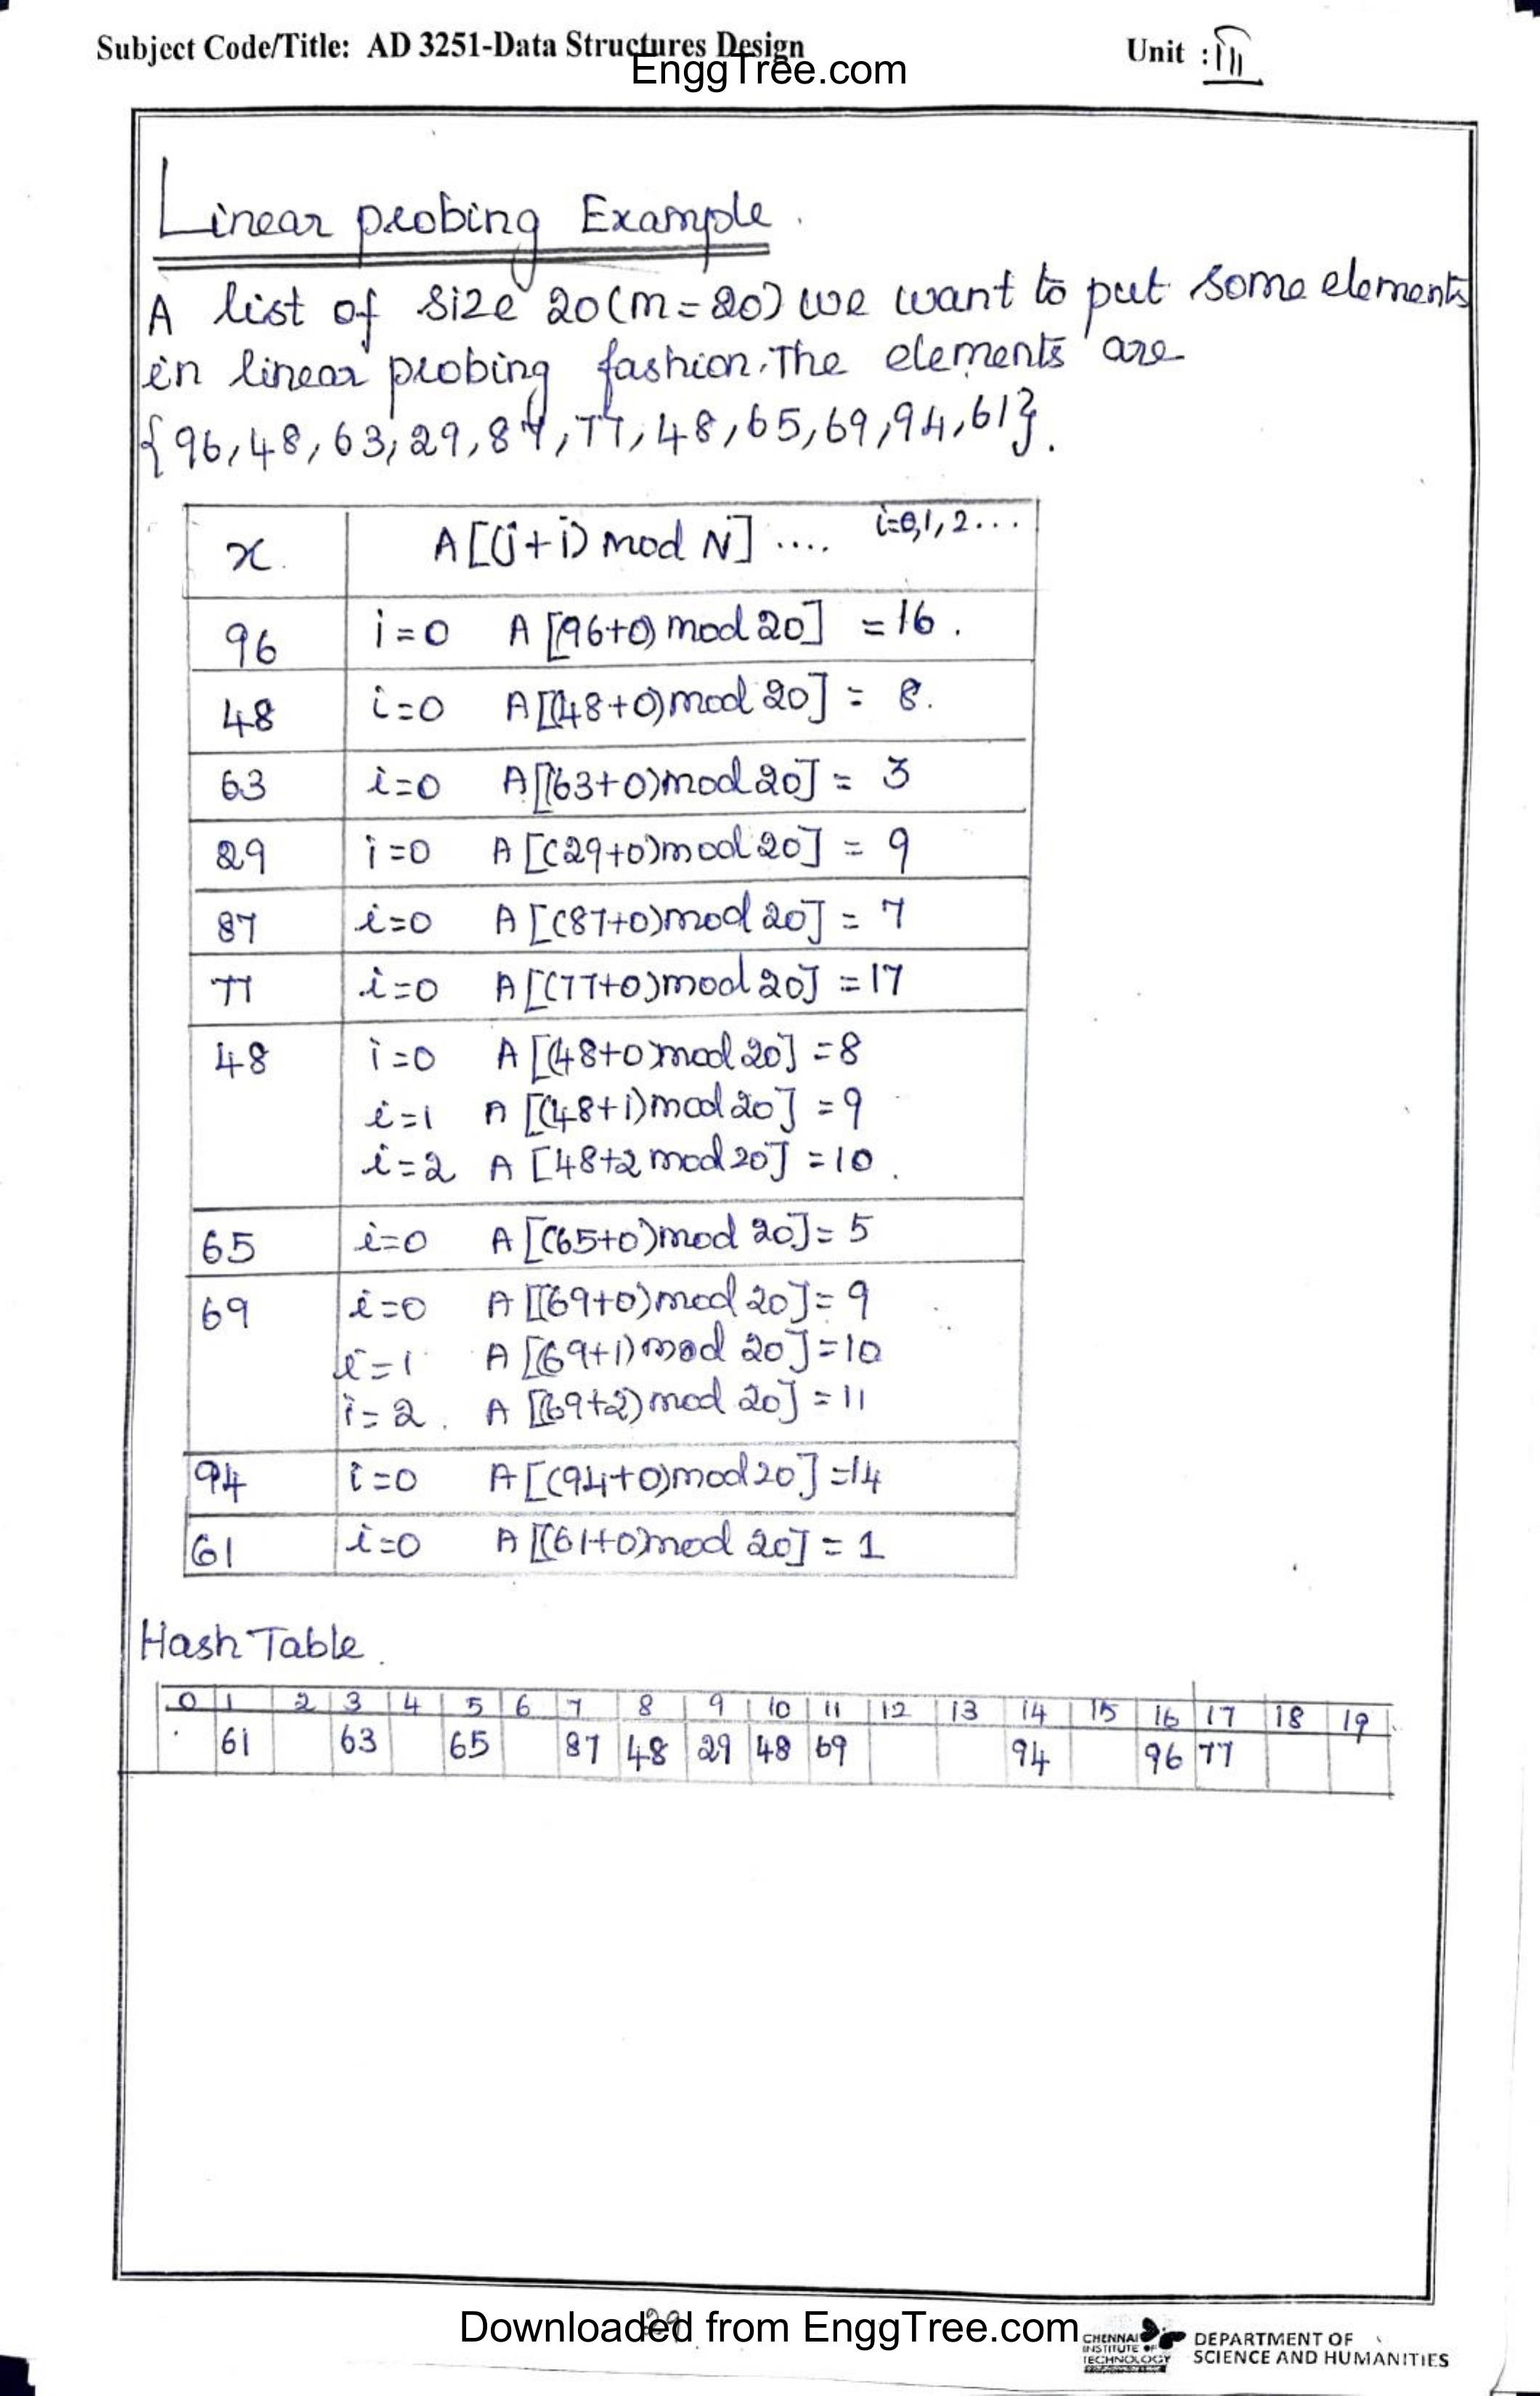 Subject Code/Title: AD 3251-Data Structures Design
Unit : III
EnggTree.com
Linear probing Example.
A list of size 20(m=20) we want to put some elements
in linear probing fashion. The elements are
{96,48,63,29,87,77,48,65,69,94,61}.
x. A[(j+i) mod N] .... i=0,1,2...
96 i=0 A[96+0) mod 20] =16.
48 i=0 A[(48+0)mod 20] = 8.
63 i=0 A[(63+0)mod 20] = 3
29 i=0 A[(29+0)mod 20] = 9
87 i=0 A[(87+0)mod 20] = 7
77 i=0 A[(77+0)mod 20] =17
48 i=0 A[(48+0)mod 20] =8
i=1 A[(48+1)mod 20] =9
i=2 A[48+2 mod 20] =10.
65 i=0 A[(65+0)mod 20]= 5
69 i=0 A[(69+0)mod 20]= 9
i=1 A[(69+1)mod 20]=10
i=2. A[(69+2)mod 20] =11
94 i=0 A[(94+0)mod 20] =14
61 i=0 A[(61+0)mod 20] = 1
Hash Table.
0 1 2 3 4 5 6 7 8 9 10 11 12 13 14 15 16 17 18 19
61 63 65 87 48 29 48 69 94 96 77
Downloaded from EnggTree.com
CHENNAI
INSTITUTE OF
TECHNOLOGY
DEPARTMENT OF
SCIENCE AND HUMANITIES